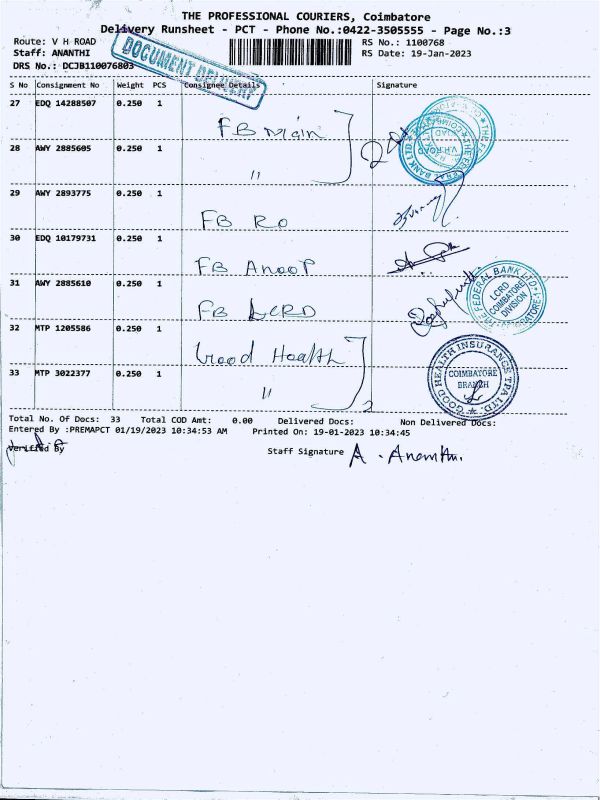 THE PROFESSIONAL COURIERS, Coimbatore
Delivery Runsheet - PCT - Phone No.:0422-3505555 - Page No.:3
Route: V H ROAD RS No.: 1100768
Staff: ANANTHI RS Date: 19-Jan-2023
DRS No.: DCJB110076803
DOCUMENT DELIVERY
S No Consignment No Weight PCS Consignee Details Signature
27 EDQ 14288507 0.250 1 FB Main
28 AWY 2885605 0.250 1 "
THE FEDERAL BANK LTD
V.H.ROAD
29 AWY 2893775 0.250 1 FB RO
30 EDQ 10179731 0.250 1 FB Anoop
31 AWY 2885610 0.250 1 FB LCRD
THE FEDERAL BANK LTD
LCRD
COIMBATORE
DIVISION
32 MTP 1205586 0.250 1 Good Health
33 MTP 3022377 0.250 1 " 2
GOOD HEALTH INSURANCE TPA LTD.
COIMBATORE
BRANCH
Total No. Of Docs: 33 Total COD Amt: 0.00 Delivered Docs: Non Delivered Docs:
Entered By :PREMAPCT 01/19/2023 10:34:53 AM Printed On: 19-01-2023 10:34:45
Verified By Staff Signature A. Ananthi.